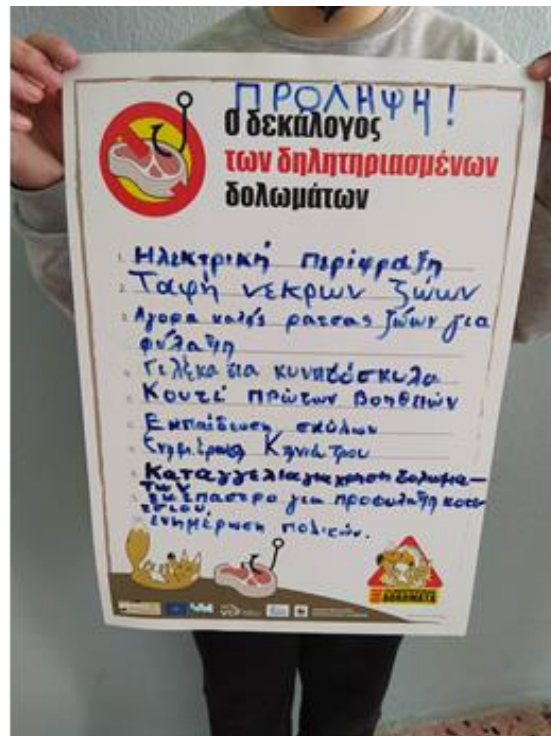 ΠΡΟΛΗΨΗ!
Ο δεκάλογος
των δηλητηριασμένων
δολωμάτων
1. Ηλεκτρική περίφραξη
2. Ταφή νεκρών ζώων
3. Αγορα καλής ράτσας ζώων για
φύλαξη
4. Γιλέκα για κυνηγόσκυλα
5. Κουτί πρώτων βοηθειών
6. Εκπαίδευση σκύλων
7. Κτηνιάτρου
8. Καταγγελία για χρηση δολωμα-
των
για προφυλαξη
ενημέρωση πολιτών.
ΔΟΛΩΜΑΤΑ